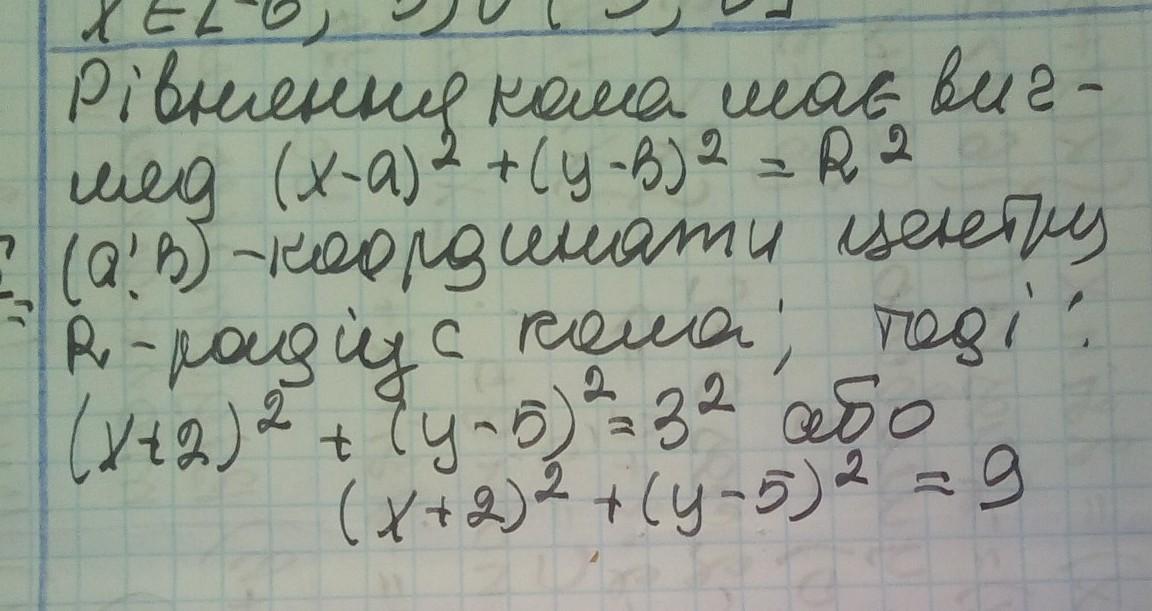 Рівняння кола має виг-
ляд (x-a)² + (y-в)² = R²
(a; в) - координати центру
R - радіус кола; тоді:
(x+2)² + (y-5)² = 3² або
(x+2)² + (y-5)² = 9